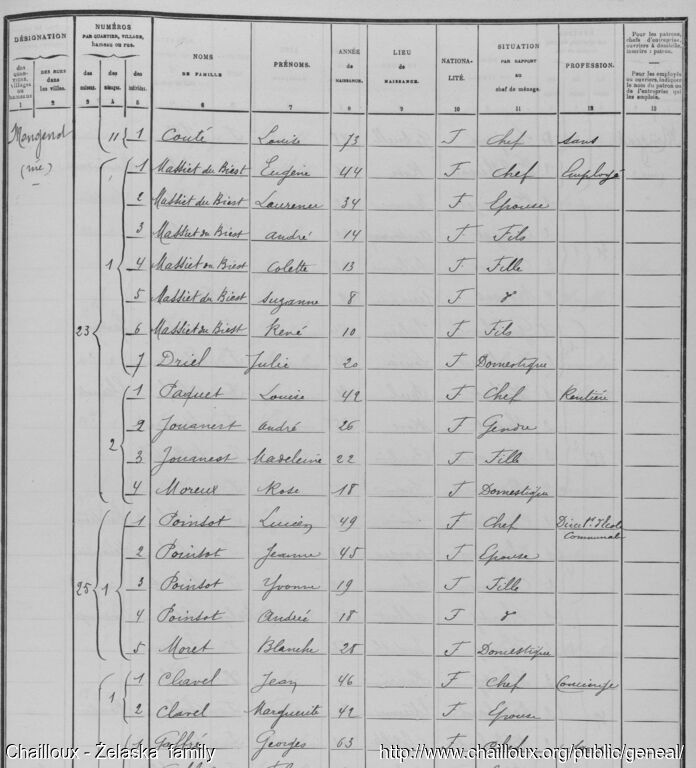 DÉSIGNATION
NUMÉROS
PAR QUARTIER, VILLAGE, hameau ou rue.
NOMS DE FAMILLE
PRÉNOMS.
ANNÉE de NAISSANCE.
LIEU de NAISSANCE.
NATIONALITÉ.
SITUATION PAR RAPPORT au chef de ménage.
PROFESSION.
Pour les patrons, chefs d'entreprise, ouvriers à domicile, inscrire : patron.
Pour les employés ou ouvriers, indiquer le nom du patron ou de l'entreprise qui les emploie.
des quartiers, villages ou hameaux
DES RUES dans les villes.
des maisons.
des ménages.
des individus.
1 2 3 4 5 6 7 8 9 10 11 12 13
(rue) 11 1 Couté Louise 73 F Chef sans
23 1 1 Massiet du Biest Eugène 44 F Chef Employé
2 Massiet du Biest Laurence 34 F Epouse
3 Massiet du Biest André 14 F Fils
4 Massiet du Biest Colette 13 F Fille
5 Massiet du Biest Suzanne 8 F d
6 Massiet du Biest René 10 F Fils
7 Driel Julie 20 F Domestique
2 1 Paquet Louise 42 F Chef Rentière
2 Jouanest André 26 F Gendre
3 Jouanest Madeleine 22 F Fille
4 Moreux Rose 18 F Domestique
25 1 1 Poinsot Lucien 49 F Chef Communal
2 Poinsot Jeanne 45 F Epouse
3 Poinsot Yvonne 19 F Fille
4 Poinsot Andrée 18 F d
5 Moret Blanche 28 F Domestique
1 1 Clavel Jean 46 F Chef Concierge
2 Clavel Marguerite 42 F Epouse
1 Georges 63 F Chef
Chailloux - Żelaska family
http://www.chailloux.org/public/geneal/